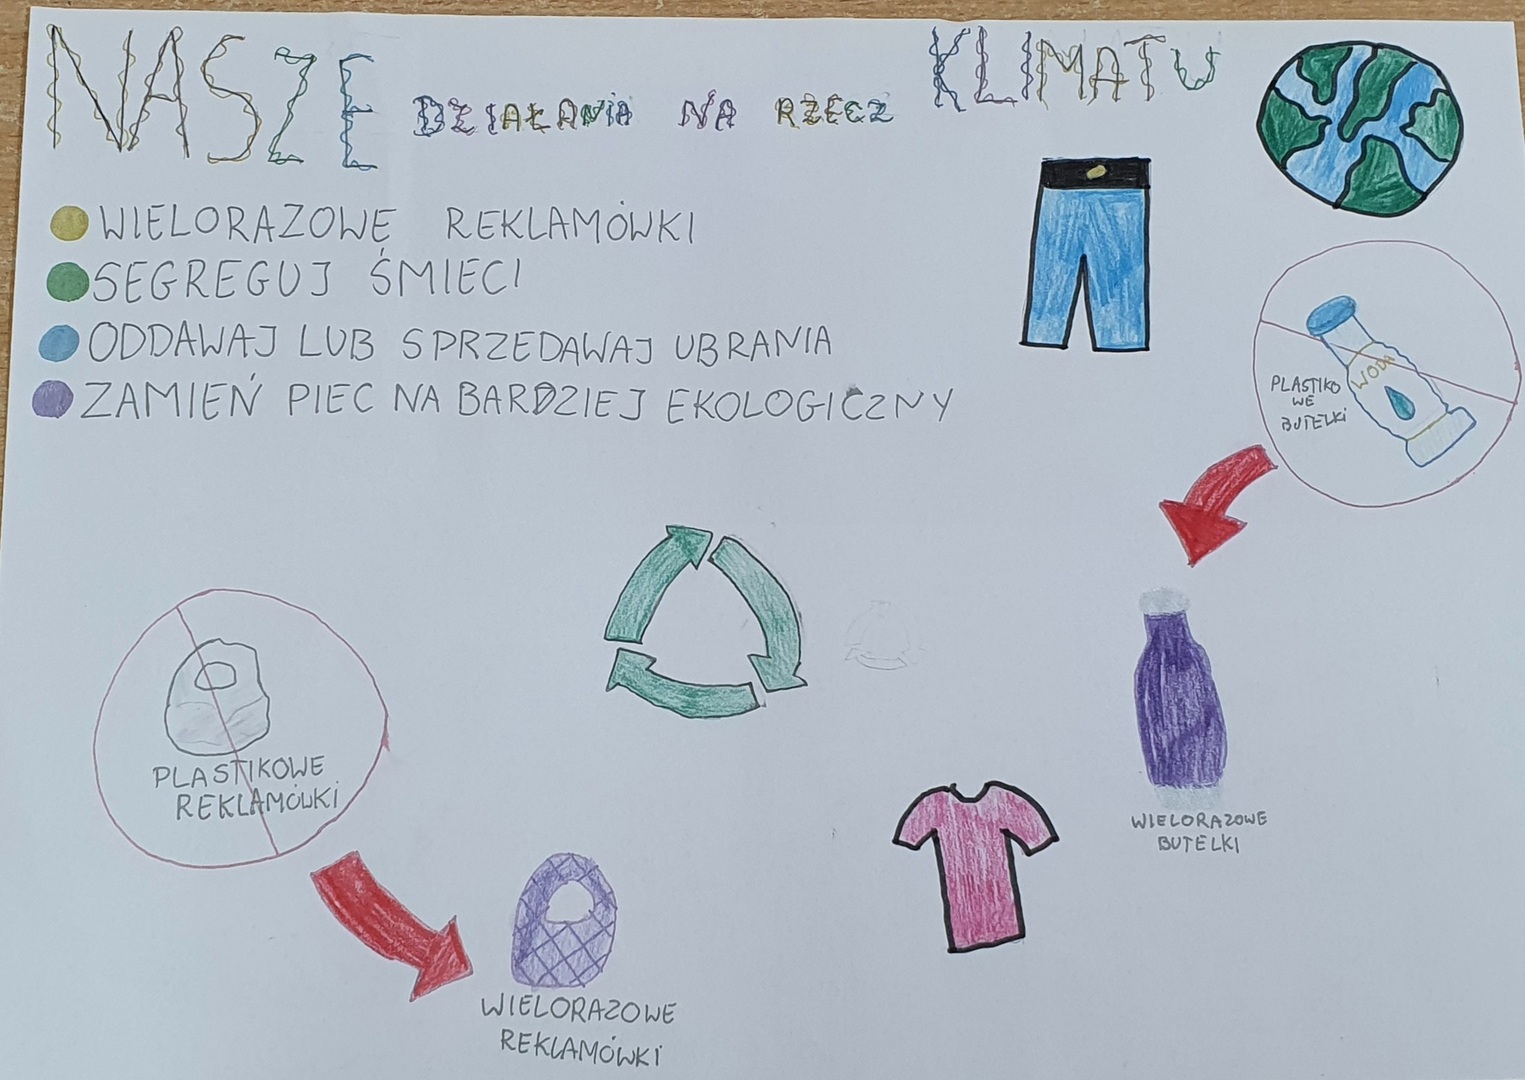 NASZE DZIAŁANIA NA RZECZ KLIMATU
WIELORAZOWE REKLAMÓWKI
SEGREGUJ ŚMIECI
ODDAWAJ LUB SPRZEDAWAJ UBRANIA
ZAMIEŃ PIEC NA BARDZIEJ EKOLOGICZNY
WODA
PLASTIKO
WE
BUTELKI
PLASTIKOWE
REKLAMÓWKI
WIELORAZOWE
BUTELKI
WIELORAZOWE
REKLAMÓWKI